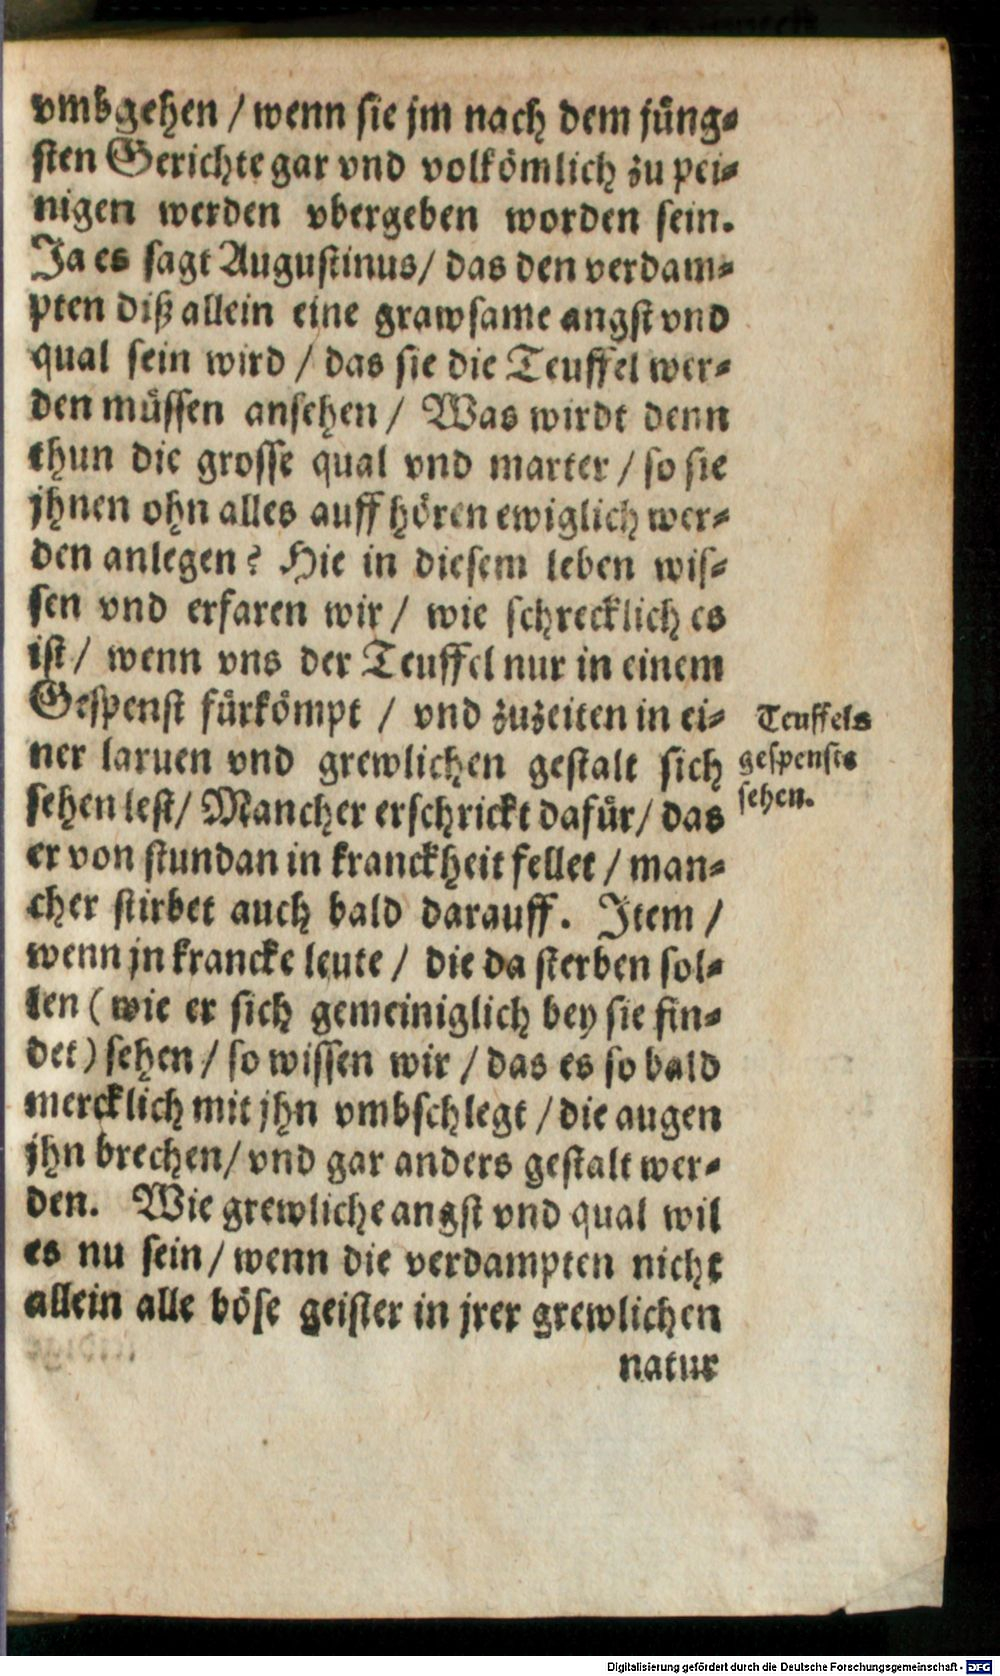 vmbgehen / wenn sie jm nach dem jüng⸗
sten Gerichte gar vnd volkömlich zu pei⸗
nigen werden vbergeben worden sein.
Ja es sagt Augustinus / das den verdam⸗
pten diß allein eine grawsame angst vnd
qual sein wird / das sie die Teuffel wer⸗
den müssen ansehen / Was wirdt denn
thun die grosse qual vnd marter / so sie
jhnen ohn alles auffhören ewiglich wer⸗
den anlegen? Hie in diesem leben wis⸗
sen vnd erfaren wir / wie schrecklich es
ist / wenn vns der Teuffel nur in einem
Gespenst fürkömpt / vnd zuzeiten in ei⸗
ner laruen vnd grewlichen gestalt sich
sehen lest / Mancher erschrickt dafür / das
er von stundan in kranckheit fellet / man⸗
cher stirbet auch bald darauff. Item /
wenn jn krancke leute / die da sterben sol⸗
len (wie er sich gemeiniglich bey sie fin⸗
det) sehen / so wissen wir / das es so bald
mercklich mit jhn vmbschlegt / die augen
jhn brechen / vnd gar anders gestalt wer⸗
den. Wie grewliche angst vnd qual wil
es nu sein / wenn die verdampten nicht
allein alle böse geister in jrer grewlichen
natur
Teuffels
gespensts
sehen.
Digitalisierung gefördert durch die Deutsche Forschungsgemeinschaft - DFG